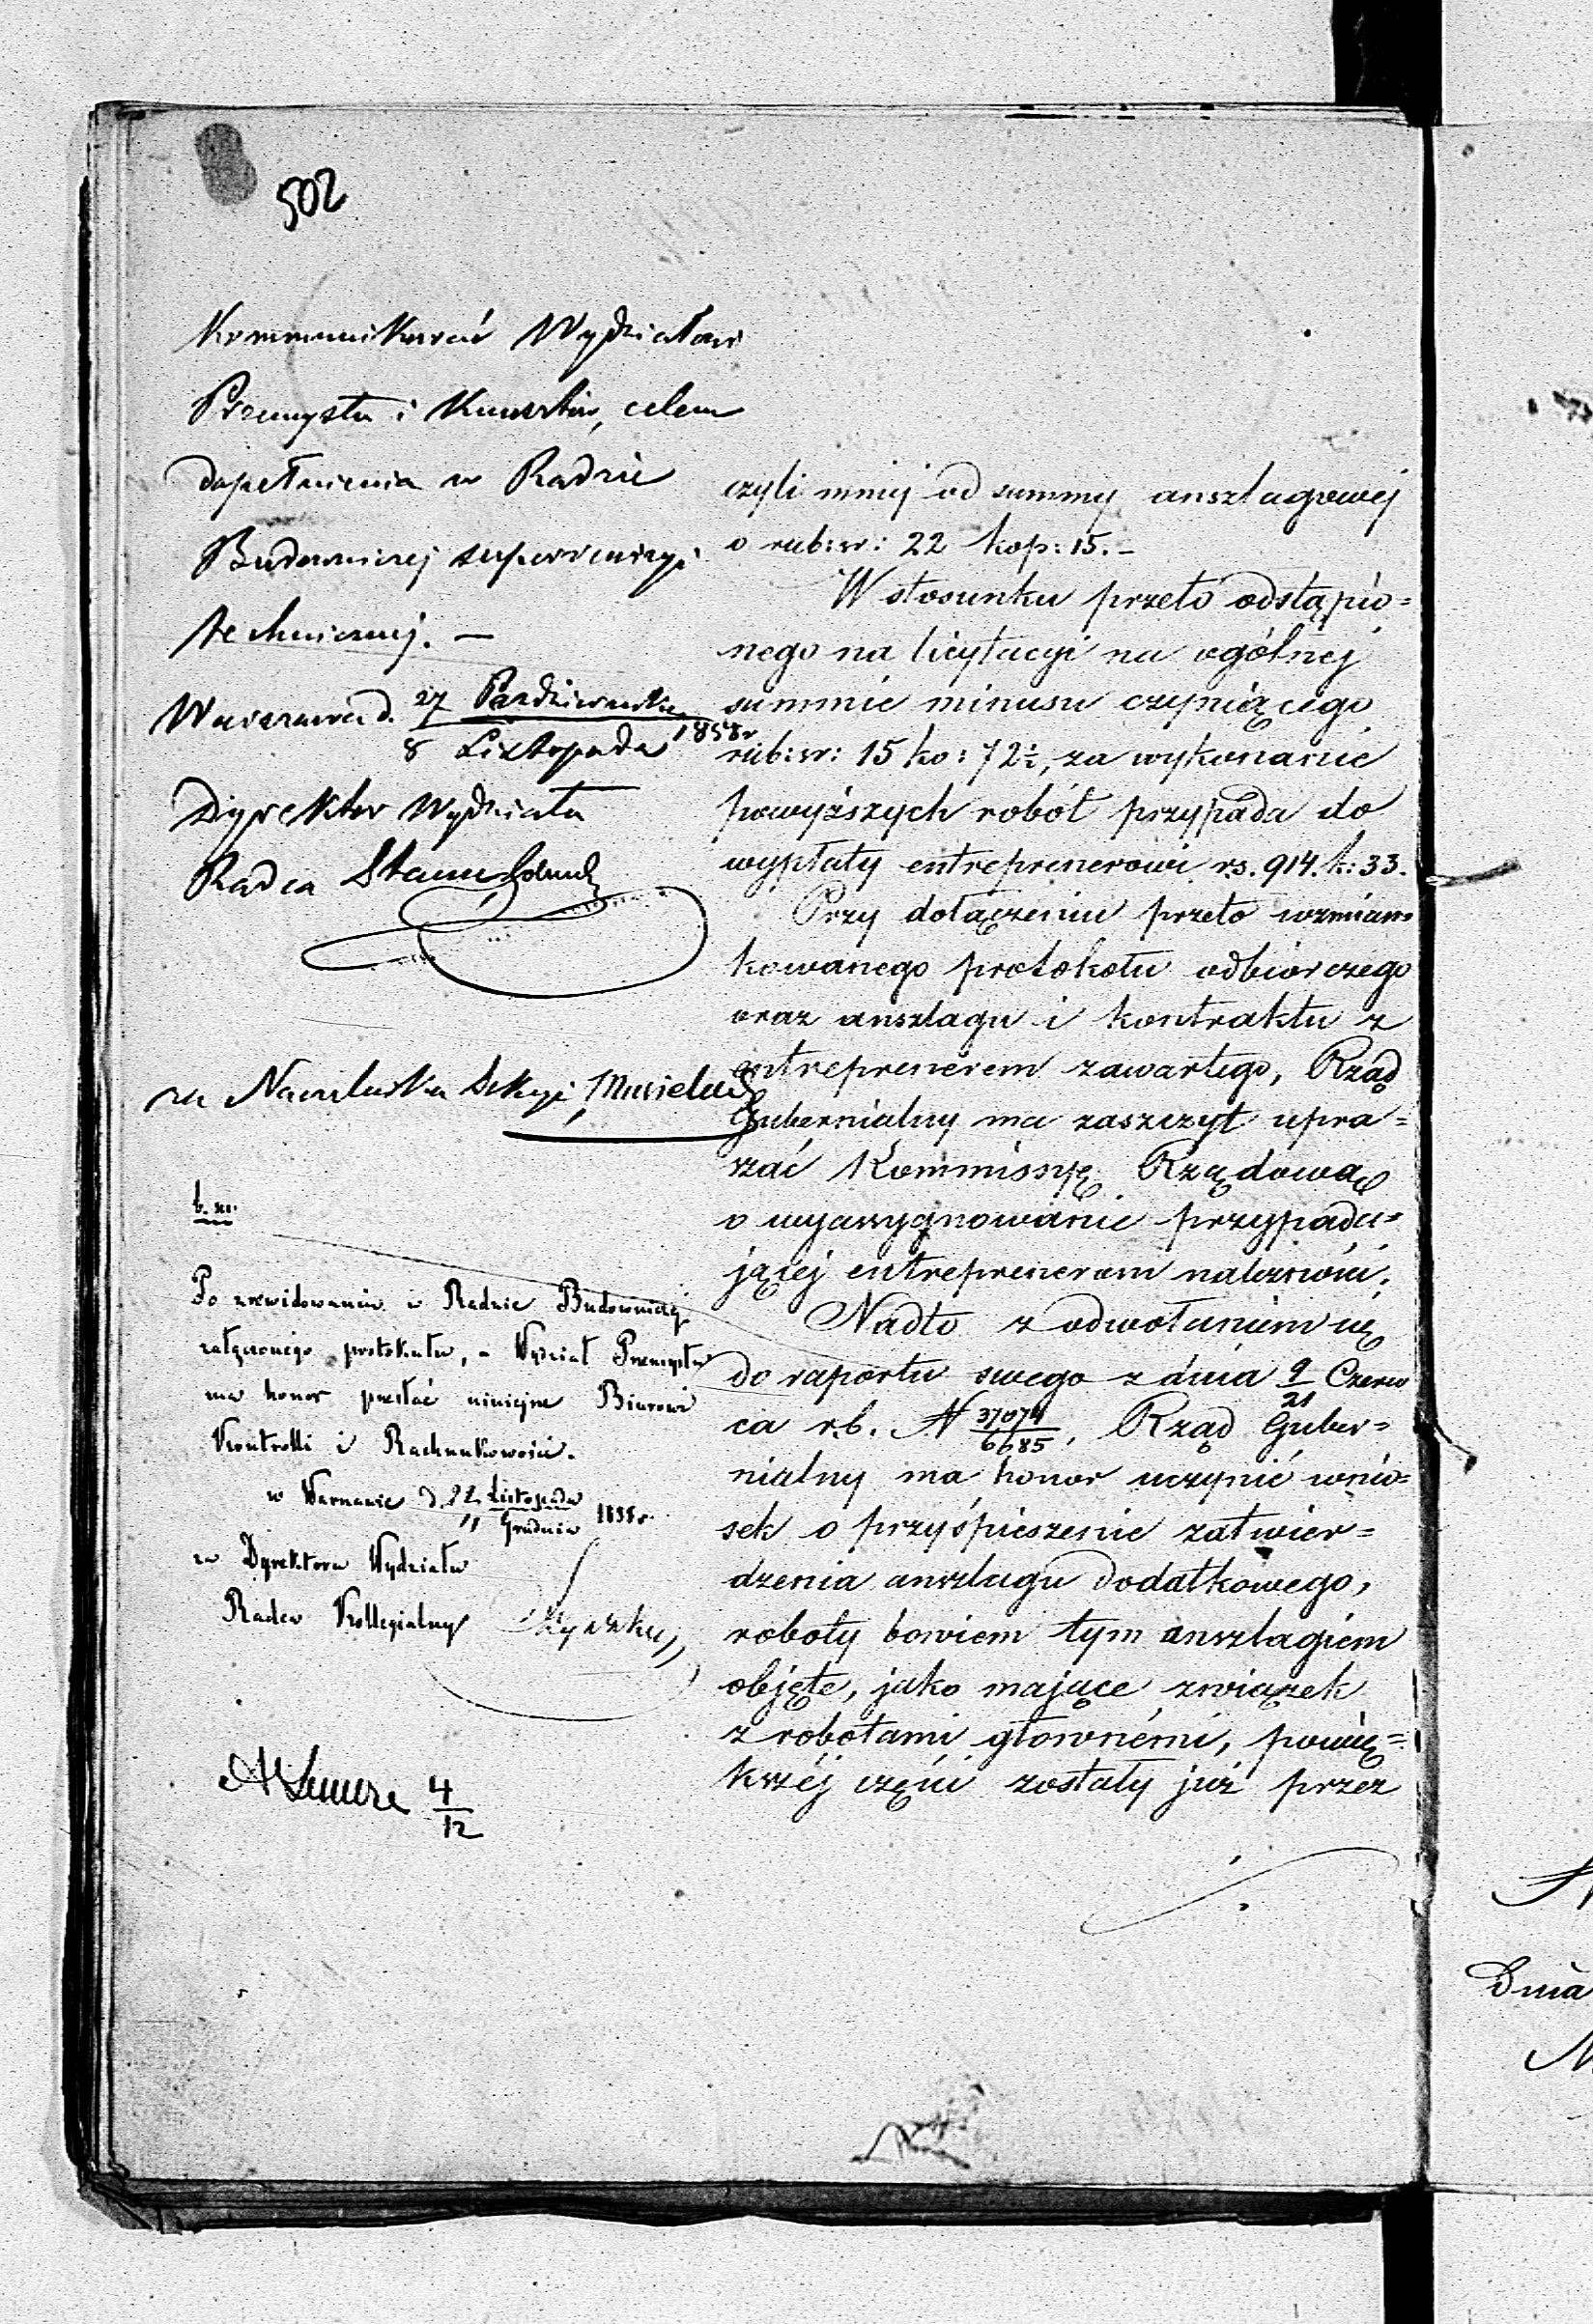 502
Kommunikować Wydziałowi
Przemysłu i Kunsztów, celem
dopełnienia w Radzie
Budowniczej superrewizyi
technicznej. —
Warszawa d. 27 Października
8 Listopada 1858 r
Dyrektor Wydziału
Radca
za Naczelnika Sekcyi
Po zrewidowaniu w Radzie Budowniczej
załączonego protokułu, Wydział Przemysłu
ma honor przesłać niniejsze Biurowi
Kontrolli i Rachunkowości.
w Warszawie d. Listopada
Grudnia 1858 r.
za Dyrektora Wydziału
Radca Kollegialny
4/12
czyli mniej od summy anszlagowej
o rub: sr: 22 kop: 15. –
W stosunku przeto odstąpio=
nego na licytacyi na ogólnej
summie minusu czyniącego
rub: sr: 15 ko: 72½, za wykonanie
powyższych robót przypada do
wypłaty entreprenerowi rs. 914. k: 33.
Przy dołączeniu przeto wzmian=
kowanego protokołu odbiorczego
oraz anszlagu i kontraktu z
entreprenerem zawartego, Rząd
Gubernialny ma zaszczyt upra=
szać Kommissyę Rządową
o wyassygnowanie przypada=
jącej entreprenerom należności.
Nadto z odwołaniem się
do raportu swego z dnia 9/21 Czerw
ca r.b. N 37074/6685, Rząd Guber=
nialny ma honor uczynić wnio=
sek o przyśpieszenie zatwier=
dzenia anszlagu dodatkowego,
roboty bowiem tym anszlagiem
objęte, jako mające związek
z robotami głównémi, powię=
kszéj części zostały już przez
Dnia